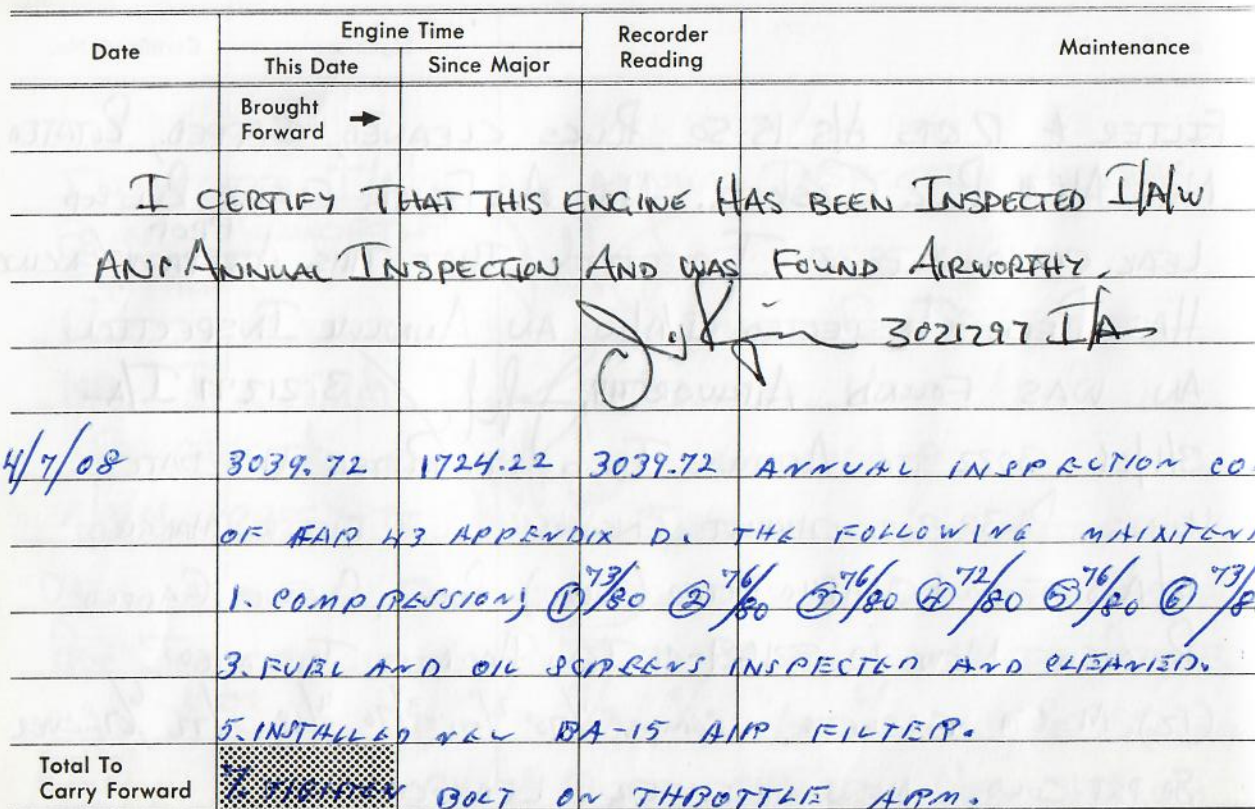 Date Engine Time Recorder Reading Maintenance
This Date Since Major
Brought Forward →
I CERTIFY THAT THIS ENGINE HAS BEEN INSPECTED I/A/W
AN ANNUAL INSPECTION AND WAS FOUND AIRWORTHY.
3021297 I/A
4/7/08 3039.72 1724.22 3039.72 ANNUAL INSPECTION CO
OF FAR 43 APPENDIX D. THE FOLLOWING MAINTEN
1. COMPRESSION; ① 73/80 ② 76/80 ③ 76/80 ④ 72/80 ⑤ 76/80 ⑥ 73/8
3. FUEL AND OIL SCREENS INSPECTED AND CLEANED.
5. INSTALLED NEW BA-15 AIR FILTER.
Total To Carry Forward
7. TIGHTEN BOLT ON THROTTLE ARM.